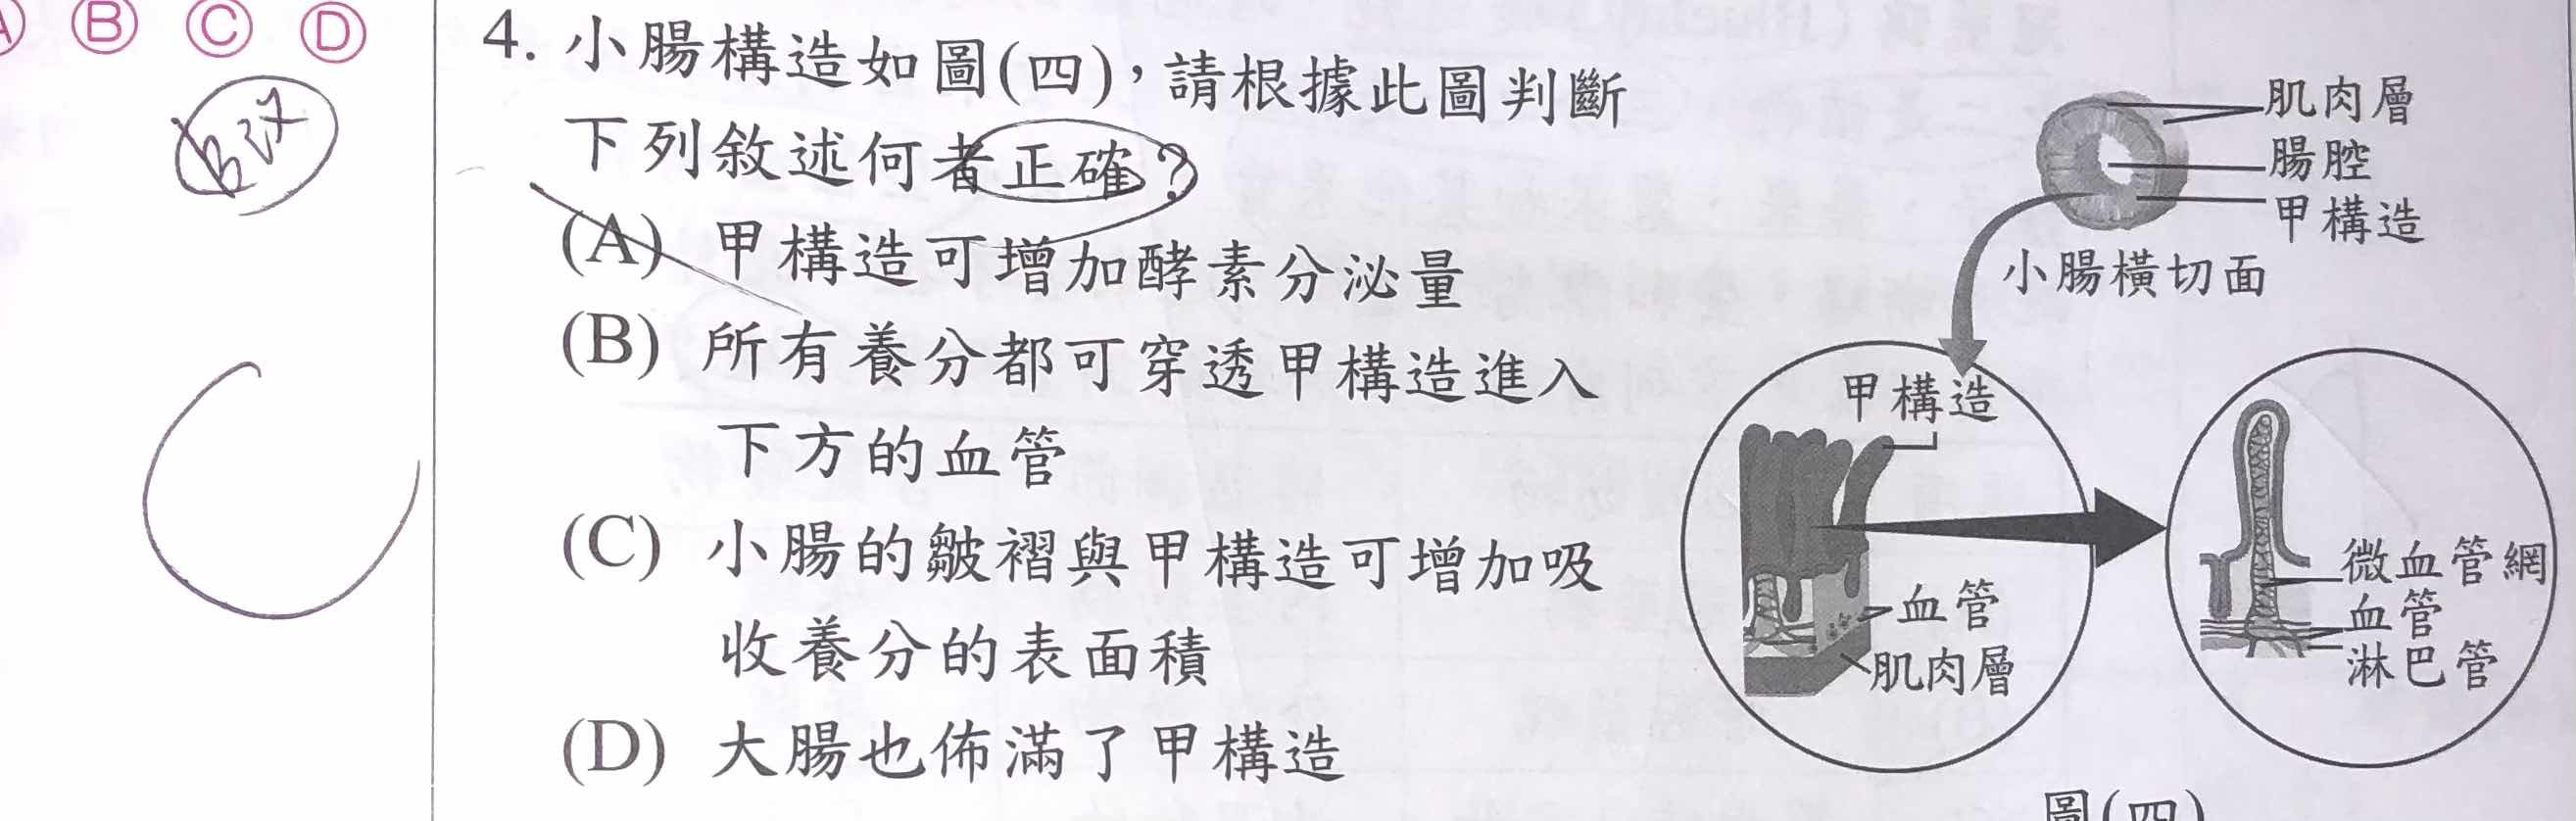 Ⓑ Ⓒ Ⓓ
4. 小腸構造如圖(四),請根據此圖判斷
下列敘述何者正確?
(A) 甲構造可增加酵素分泌量
(B) 所有養分都可穿透甲構造進入
下方的血管
(C) 小腸的皺褶與甲構造可增加吸
收養分的表面積
(D) 大腸也佈滿了甲構造
肌肉層
腸腔
甲構造
小腸橫切面
甲構造
血管
肌肉層
微血管網
血管
淋巴管
圖(四)